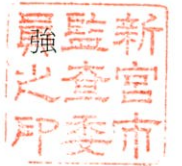 新宮市
監査委
員之印
強